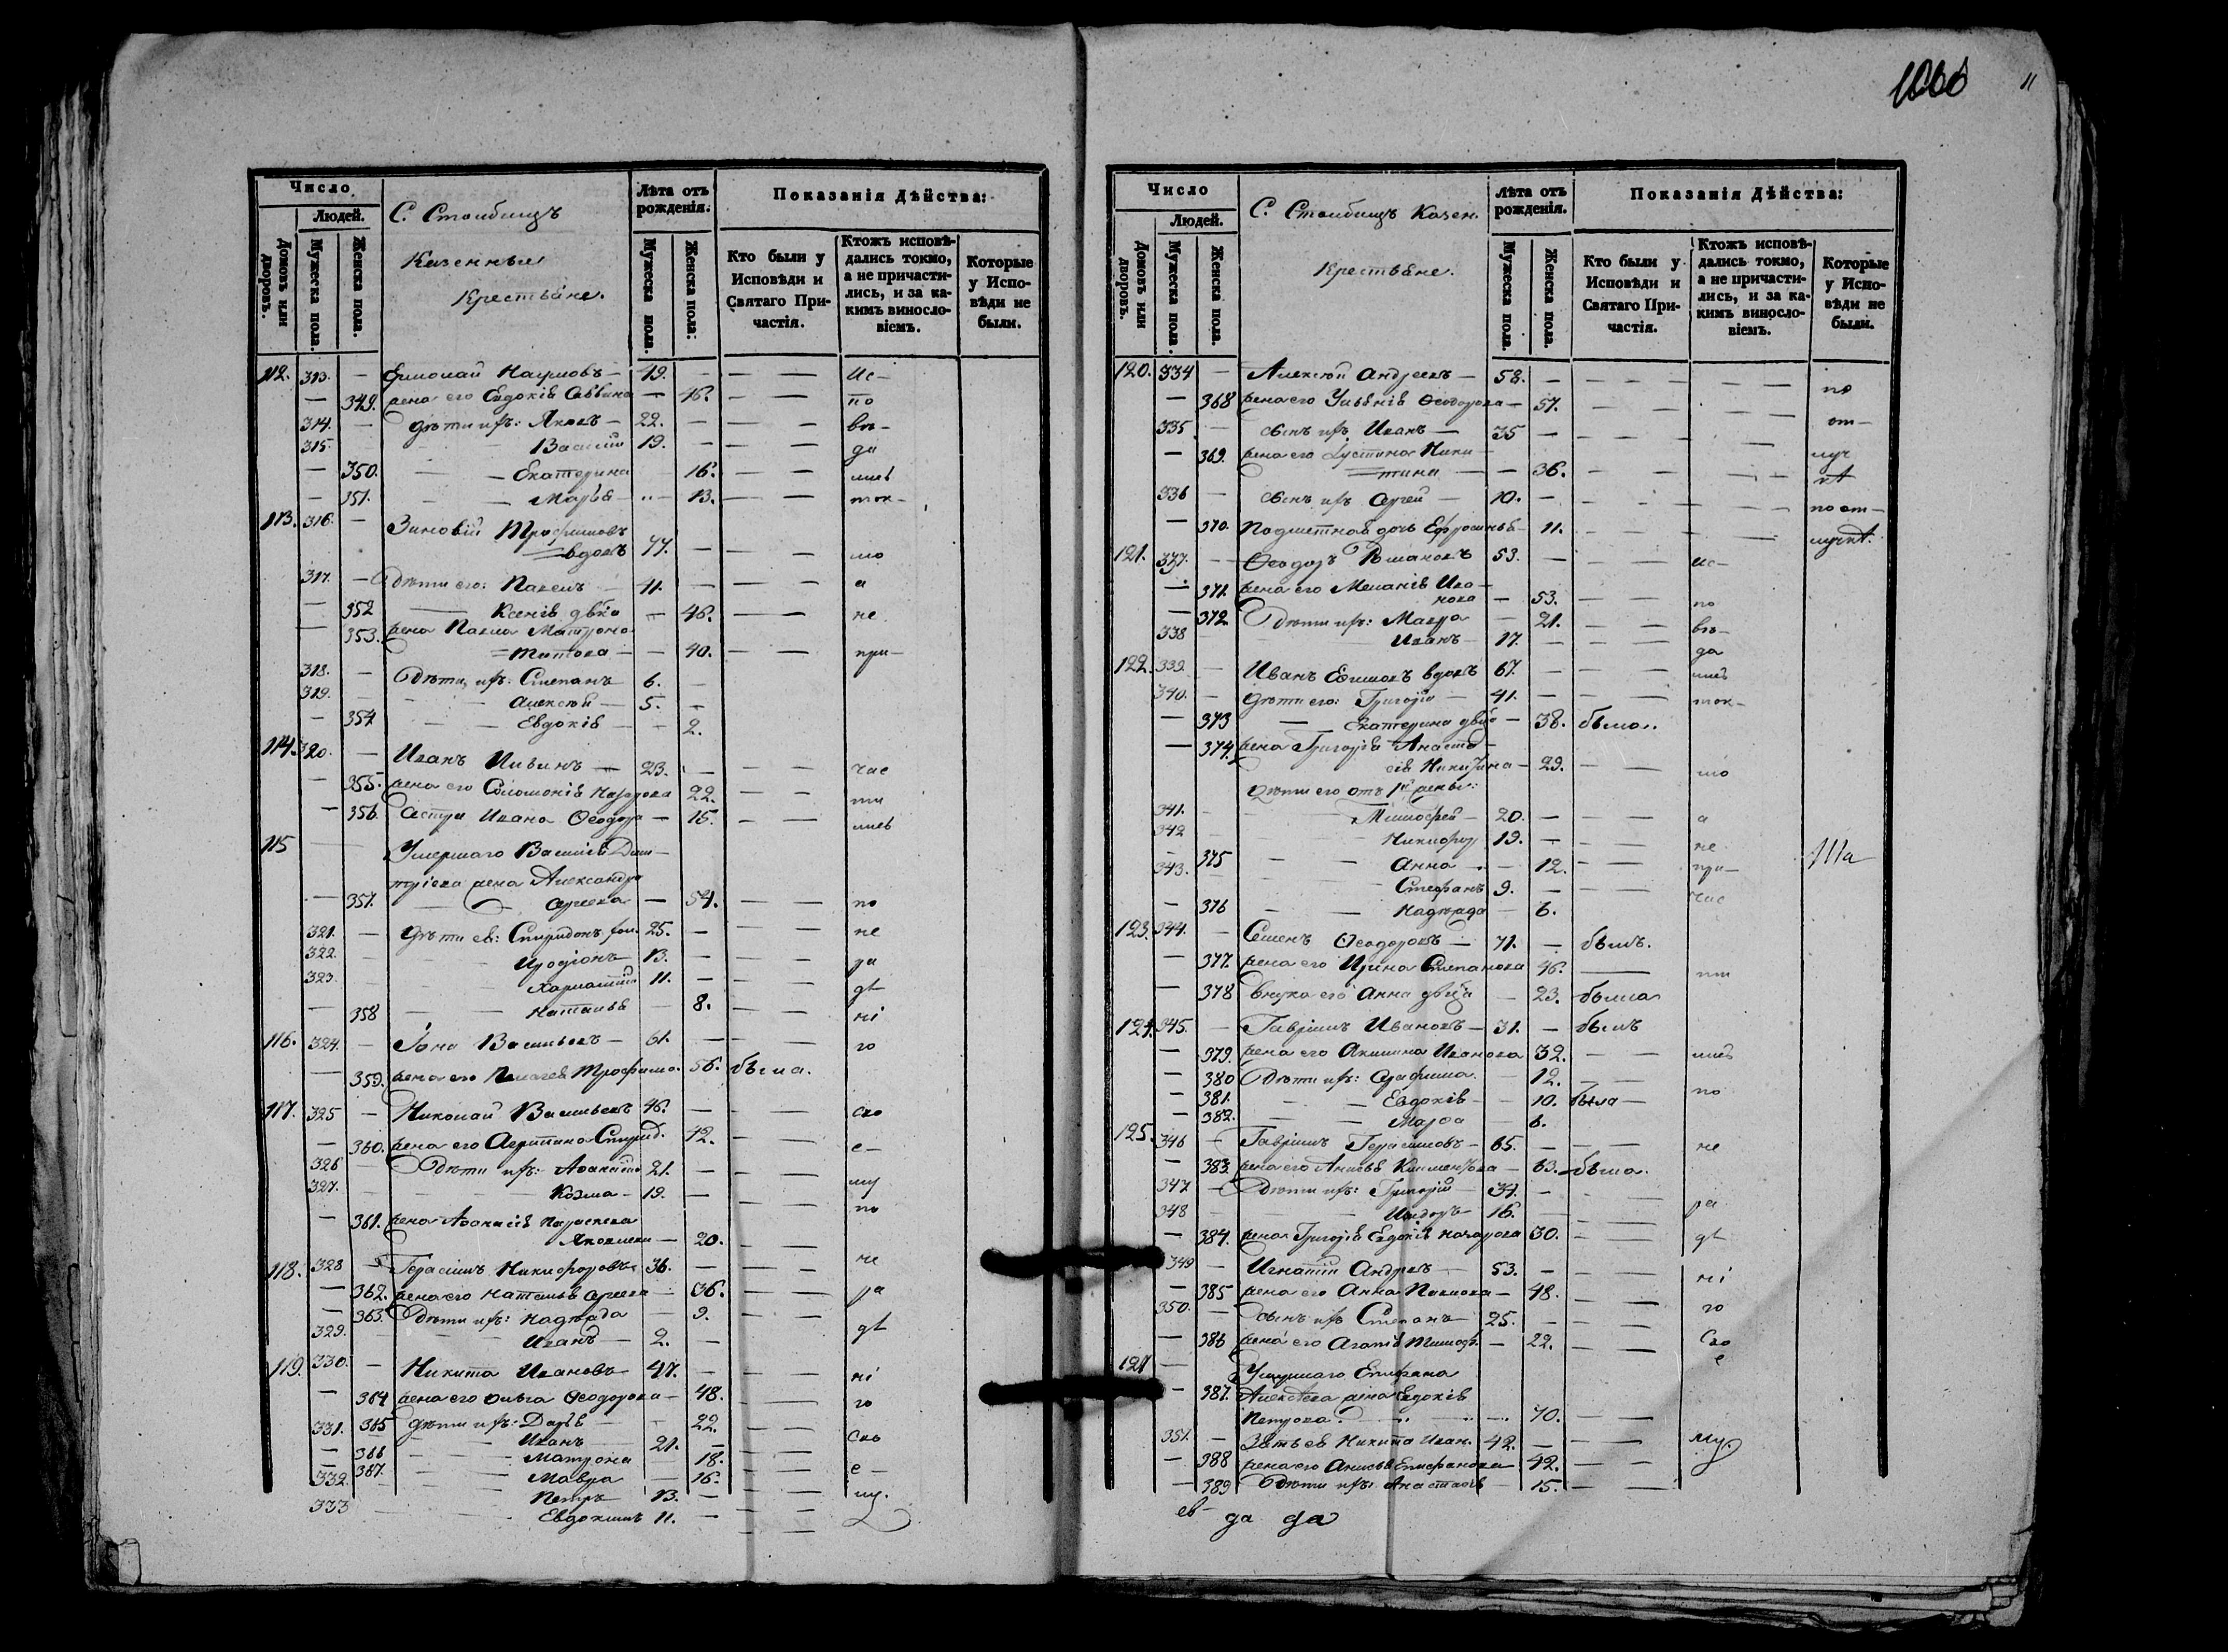 1066 11
Число
Людей.
Домовъ или дворовъ.
Мужеска пола.
Женска пола.
С. Столбищъ
Казенные
Крестьяне.
Лѣта отъ рожденія.
Мужеска пола.
Женска пола:
Показанія Дѣйства:
Кто были у Исповѣди и Святаго Причастія.
Ктожъ исповѣдались токмо, а не причастились, и за какимъ винословіемъ.
Которые у Исповѣди не были.
112. 313. — Наумовъ — 49. — — — Ис—
— 349. жена его Евдокія Саввина — 46. — — по
314. — дѣти ихъ: Яковъ — 22. — — — вѣ—
315. Василій 19. — — да
— 350. — Екатерина 16. — — лись
— 351. — Марья — 13. — — ток—
113. 316. — Зиновій Трофимовъ
вдовъ 77. — — — мо
317. — Дѣти его: Павелъ — 41. — — — а
— 352 — Ксенія двка — 46. — — не
— 353. жена Павла Матрона
Титова — — 40. — — при—
318. — Дѣти ихъ: Степанъ 6. —
319. — Алексѣй — 5. —
— 354 — Евдокія — 2.
114. 320. — Иванъ 23. — — — час
— 355. жена его Соломонія Назарова 22. — — ти
— 356. Сестра Ивана Ѳеодора — 15. — — лись
115 — — Умершаго Василія Дми—
тріева жена Александра
— 357. Сергеева — 54. — — по
321. — дѣти ея: Спиридонъ 25. — — — не
322. — Иродіонъ 13. — — — ра
323. — Харлампій 11. — — — дѣ
— 358 — Наталья 8. — — ні
116. 324. — Іона Васильевъ — 61. — — — го
— 359. жена его Пелагея Трофимо. 56. была.
117. 325 — Николай Васильевъ 46. — — — сво
— 360. жена его Агрипина Спирид. 42. — — е—
326 — Дѣти ихъ: Аѳанасій 21. — — — му
327. — Козма — 19. — — — по
— 361. жена Аѳанасія Параскева
Яковлева — 20. — —
118. 328 — Герасимъ Никифоровъ 36. — — — не
— 362. жена его Наталья Сергеева — 36. — — ра
— 363. Дѣти ихъ: Надежда 9. — —
329. Иванъ — 2. — дѣ
119. 330. — Никита Ивановъ 47. — — — ні
— 364 жена его Ольга Ѳеодорова — 48. — — го
365 дѣти ихъ: Дарья — 22. — —
331. — Иванъ 21. — — — сво
— 366 — Матрона 18. — —
— 367. — Мавра — 16. — — е—
332. — Петръ 13. — — — му.
333 — Евдокимъ 11. — — —
Число
Людей.
Домовъ или дворовъ.
Мужеска пола.
Женска пола.
С. Столбищъ Казен.
Крестьяне.
Лѣта отъ рожденія.
Мужеска пола.
Женска пола.
Показанія Дѣйства:
Кто были у Исповѣди и Святаго Причастія.
Ктожъ исповѣдались токмо, а не причастились, и за какимъ винословіемъ.
Которые у Исповѣди не были.
120. 334 — Алексѣй Андреевъ — 58. — — — — — — по
— 368 жена его Ульянія Ѳеодорова — 57. — — — — от—
335. — сынъ ихъ Иванъ — 35 — — — — — — луч
— 369. жена его Іустина Ники—
тина — — 36. — — — — кѣ
336 — сынъ ихъ Сергей — 10. — — — — — — по от—
— 370. дочь Ефросинья — 11. — — — — лучкѣ.
121. 337. — Ѳеодоръ Романовъ 53. — — — Ис—
— 371. жена его Меланія Ива—
нова — 53. — — по
— 372. Дѣти ихъ: Мавра — 21. — — вѣ—
338 Иванъ — 17. — — — да
122. 339. — Иванъ вдовъ 67. — — — лись
340. — дѣти его: Григорій — 41. — — — ток—
— 373 — Екатерина — 38. была.
— 374. жена Григорія Анаста—
сія 29. — — мо
дѣти его отъ 1й жены:
341. Тимофей — 20. — — — а
342 Никифор 19. — — — не
— 375 — — Анна — 12. — — при— Ша
343. Стефанъ 9. — — — час
— 376 — — Надежда — 6.
123. 344. — Семенъ Ѳеодоровъ — 71. — былъ.
— 377. жена его Ирина Степанова 46. — ти
— 378 внука его Анна — 23. была
124. 345. — Гавріилъ Ивановъ — 31. — былъ
— 379. жена его Акилина Иванова 32. — — лись
— 380 Дѣти ихъ: Серафима. — 12. — —
— 381. — — Евдокія — — 10. была — по
— 382. — — Марфа — 6.
125. 346 — Гавріилъ Герасимовъ — 65. — — — не
— 383. жена его Анисья — 63. была.
347 — Дѣти ихъ: Григорій — 34. — — — ра
348 Исидоръ — 16. — — —
— 384. жена Григорія Евдокія Назарова 30. — — дѣ
349 — Игнатій Андреевъ — 53. — — — ні
— 385 жена его Анна Павлова — 48. — — го
350. — сынъ ихъ Степанъ — 25. — — — сво
— 386 жена его Агапія — 22. — — е
127 — Умершаго Епифана
— 387. Алексѣева жена Евдокія
Петрова. — 70. — —
351. — Зять ея Никита Иван. 42. — — — му.
— 388 жена его Анисья Епифанова 42. — —
— 389 Дѣти ихъ: Анастасія — 15. — —
да да